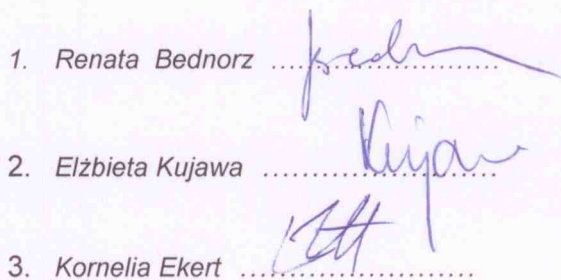 1. Renata Bednorz ..............................
2. Elżbieta Kujawa ............................. Kujawa
3. Kornelia Ekert .............................